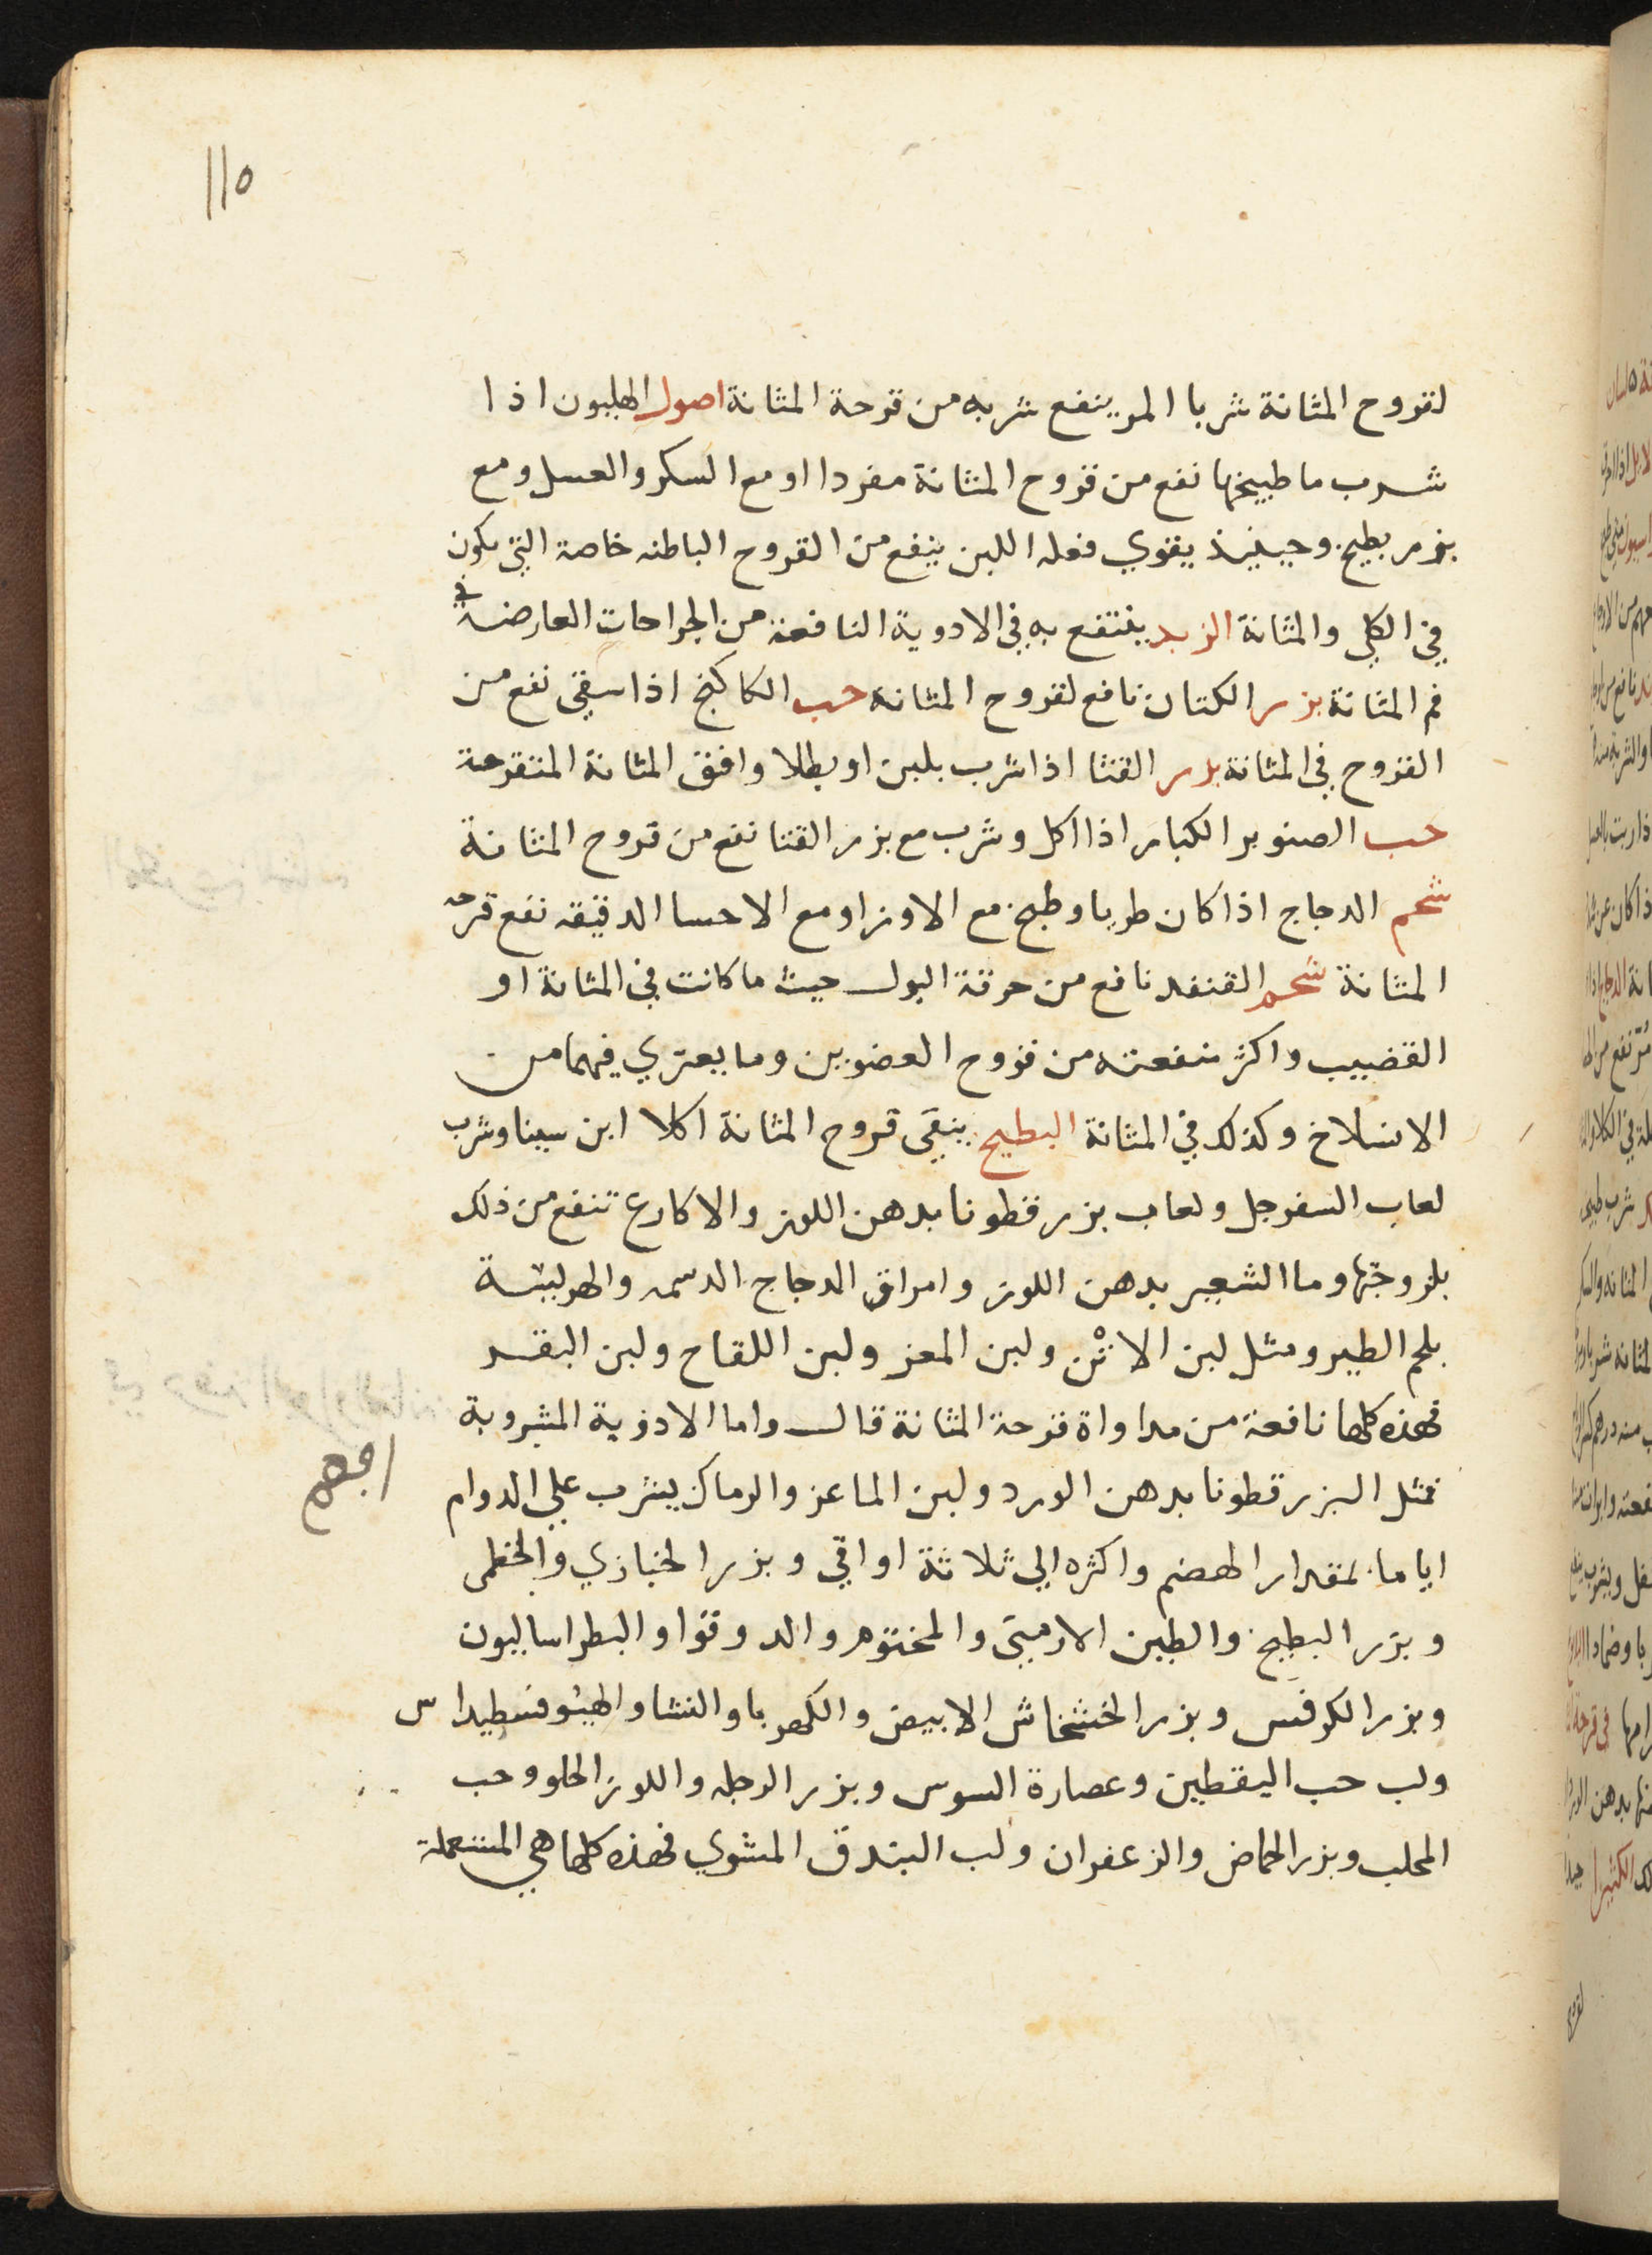 110
لقروح المثانة شربا المر ينفع شربه من قرحة المثانة اصول الهليون اذا
شرب ما طبيخها نفع من قروح المثانة مفردا او مع السكر والعسل ومع
بزر بطيخ وحينيذ يقوي فعله اللبن ينفع من القروح الباطنه خاصة التي يكون
في الكلي والمثانة الزبد ينتفع به في الادوية النافعة من الجراحات العارضة في
فم المثانة بزر الكتان نافع لقروح المثانة حب الكاكنج اذا سقي نفع من
القروح في المثانة بزر القثا اذا شرب بلبن او بطلا وافق المثانة المتقرحة
حب الصنوبر الكبار اذا اكل وشرب مع بزر القثا نفع من قروح المثانة
شحم الدجاج اذا كان طريا وطبخ مع الاوز او مع الاحسا الدقيقه نفع قرحه
المثانة شحم القنفد نافع من حرقة البول حيث ما كانت في المثانة او
القضيب واكثر منفعته من قروح العضوين وما يعتري فيهما من
الانسلاخ وكذلك في المثانة البطيخ ينقي قروح المثانة اكلا ابن سينا وشرب
لعاب السفرجل ولعاب بزر قطونا بدهن اللوز والاكارع تنفع من ذلك
بلزوجتها وما الشعير بدهن اللوز وامراق الدجاج الدسمه والهريسة
بلحم الطير ومثل لبن الاتن ولبن المعز ولبن اللقاح ولبن البقر
فهذه كلها نافعة من مداواة قرحة المثانة قال واما الادوية المشروبة
فمثل البزر قطونا بدهن الورد ولبن الماعز والرماك يشرب علي الدوام
اياما بمقدار الهضم واكثره الي ثلاثة اواقي وبزر الخبازي والخطمي
وبزر البطيخ والطين الارميني والمختوم والدوقوا والبطراساليون
وبزر الكرفس وبزر الخشخاش الابيض والكهربا والنشا والهيوفسطيداس
ولب حب اليقطين وعصارة السوس وبزر الرجله واللوز الحلو وحب
المحلب وبزر الحماض والزعفران ولب البندق المشوي فهذه كلها هي المستعملة